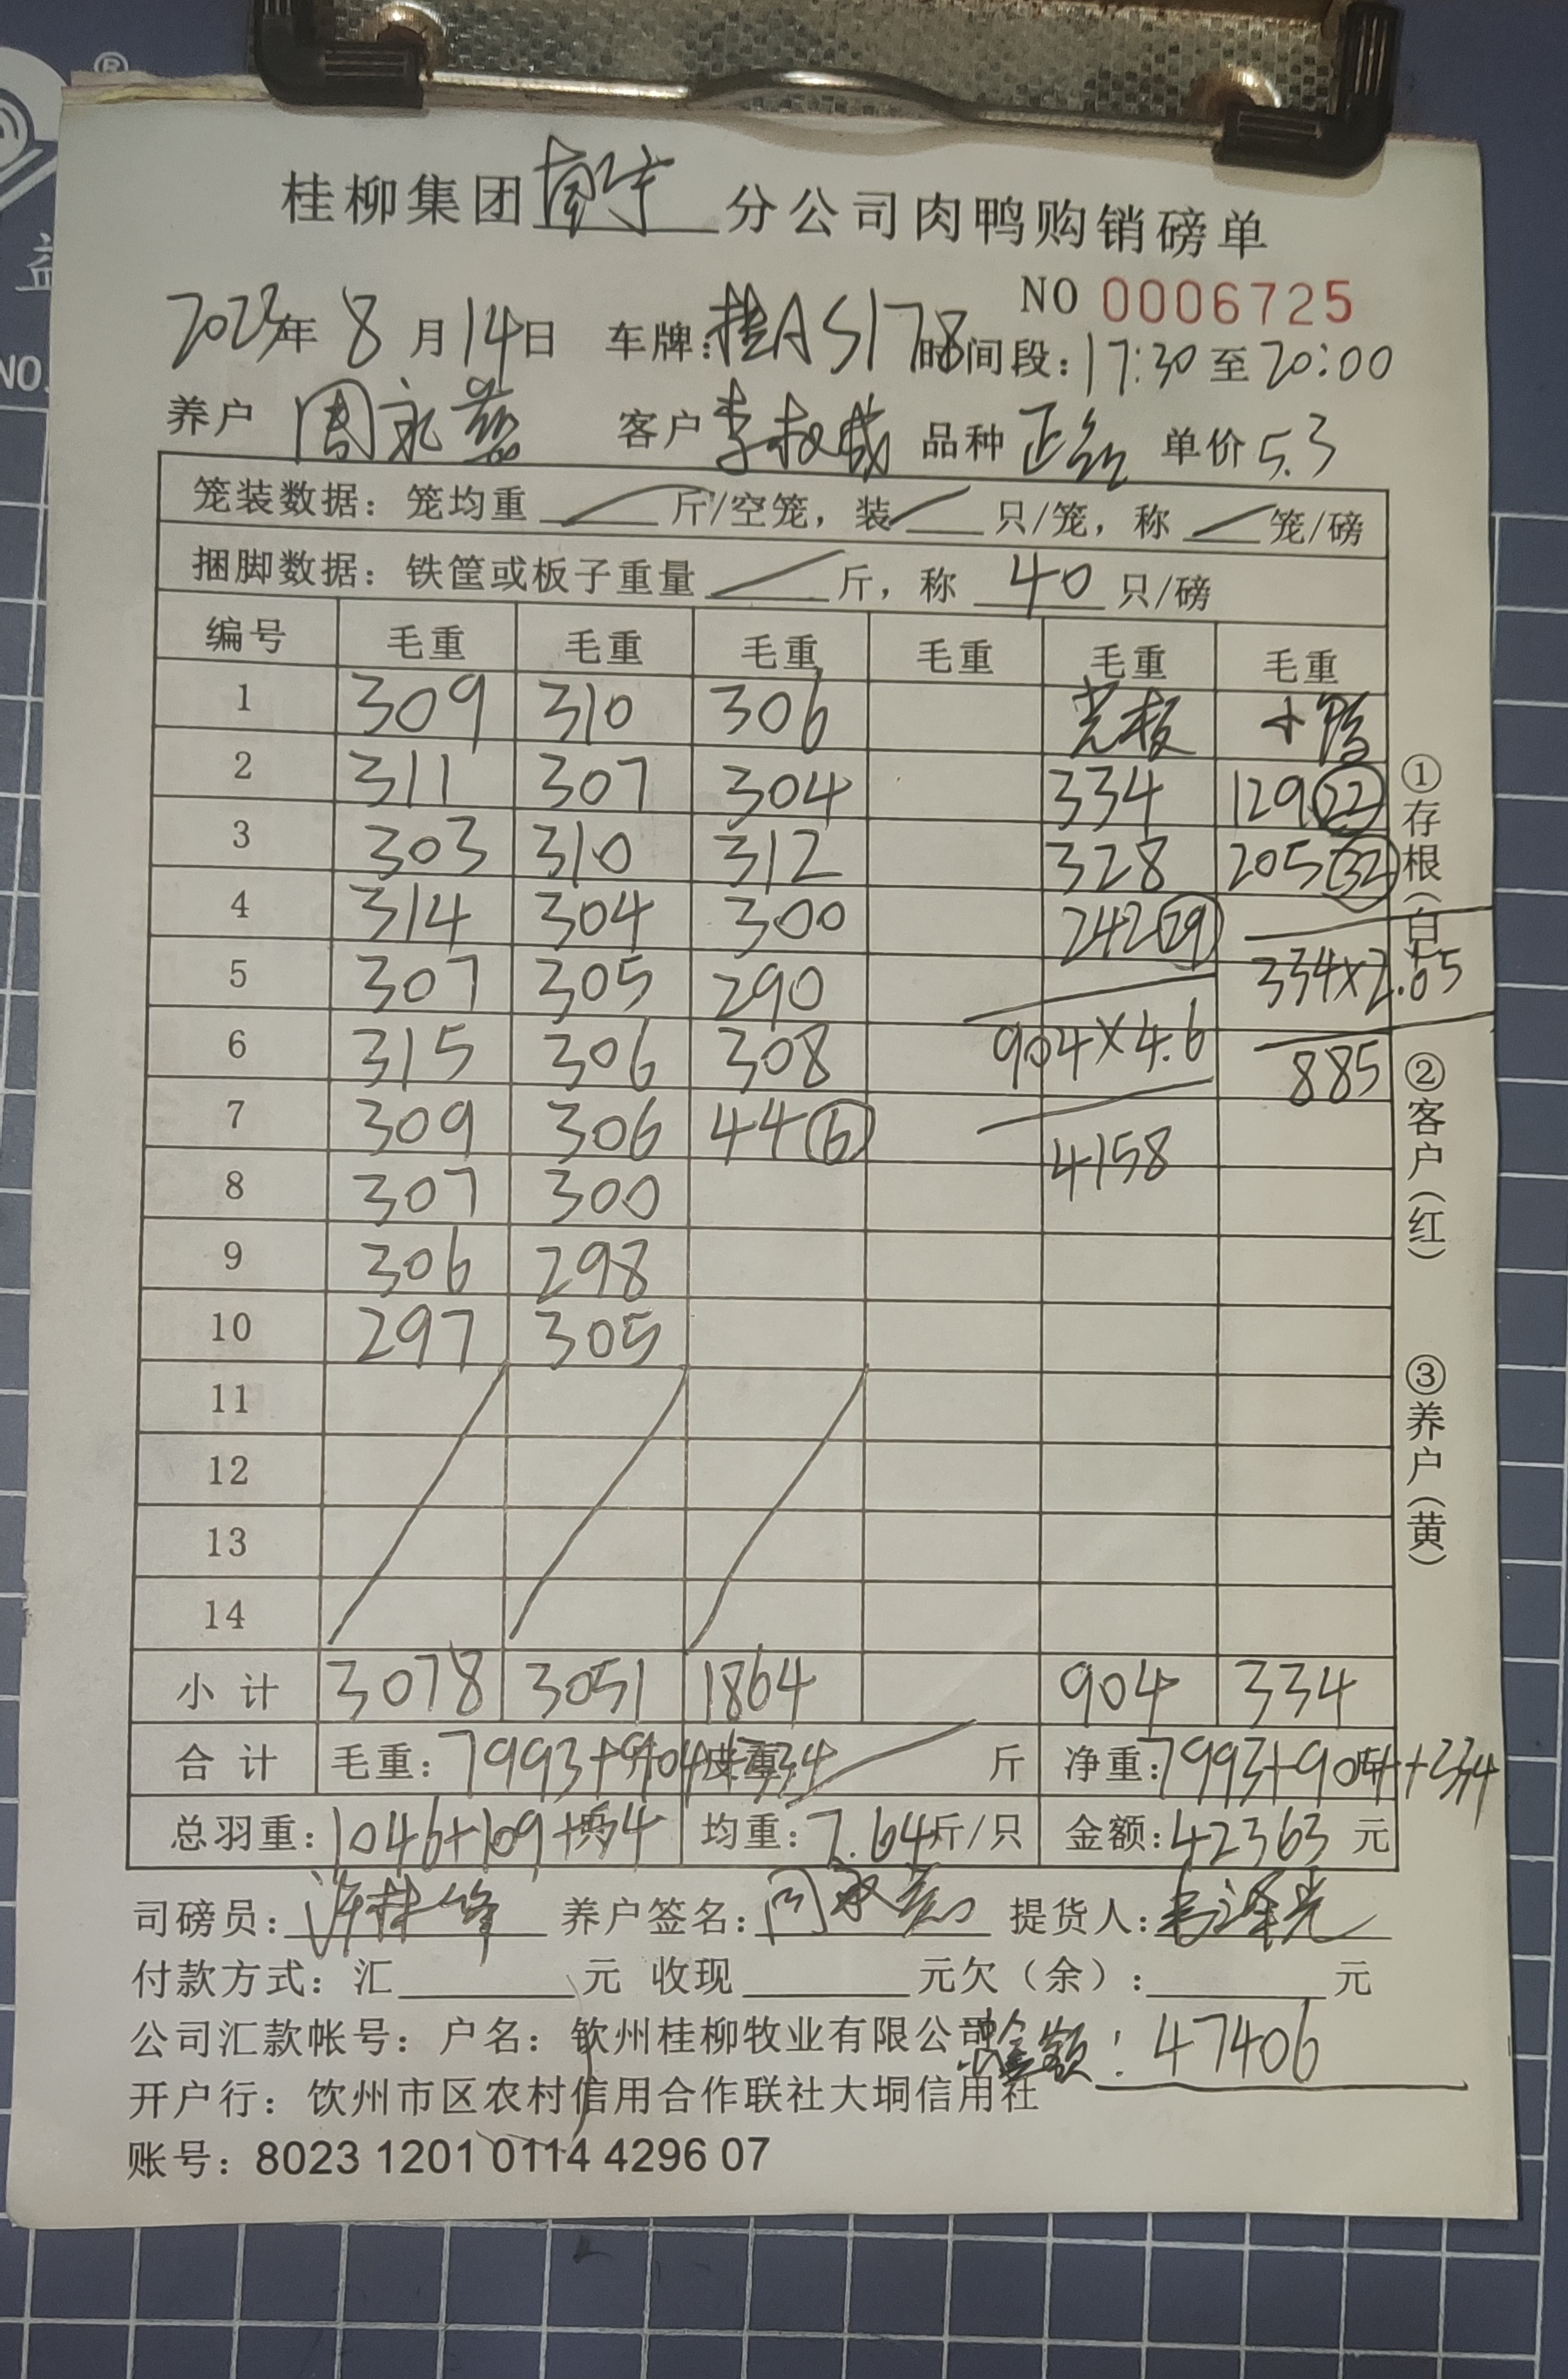 ®
益
NO.
桂柳集团南宁分公司肉鸭购销磅单
NO 0006725
2023年 8 月 14日 车牌:桂AS178 时间段:17:30 至 20:00
养户 周永慈 客户 李权成 品种 正红 单价 5.3
笼装数据：笼均重 斤/空笼，装 只/笼，称 笼/磅
捆脚数据：铁筐或板子重量 斤，称 40 只/磅
编号 毛重 毛重 毛重 毛重 毛重 毛重
1 309 310 306 光板 小鸭
2 311 307 304 334 129 22
3 303 310 312 328 205 32
4 314 304 300 242 29
5 307 305 290 334×2.65
6 315 306 308 904×4.6 885
7 309 306 44 6 4158
8 307 300
9 306 298
10 297 305
11
12
13
14
小 计 3078 3051 1864 904 334
合 计 毛重：7993+904+334 皮重： 斤 净重：7993+904+334
总羽重：1046+109+54 均重：7.64斤/只 金额：42363 元
司磅员： 养户签名： 提货人：
付款方式：汇 元 收现 元欠（余）： 元
公司汇款帐号：户名：钦州桂柳牧业有限公司 总金额：47406
开户行：饮州市区农村信用合作联社大垌信用社
账号：8023 1201 0114 4296 07
①存根（白）
②客户（红）
③养户（黄）